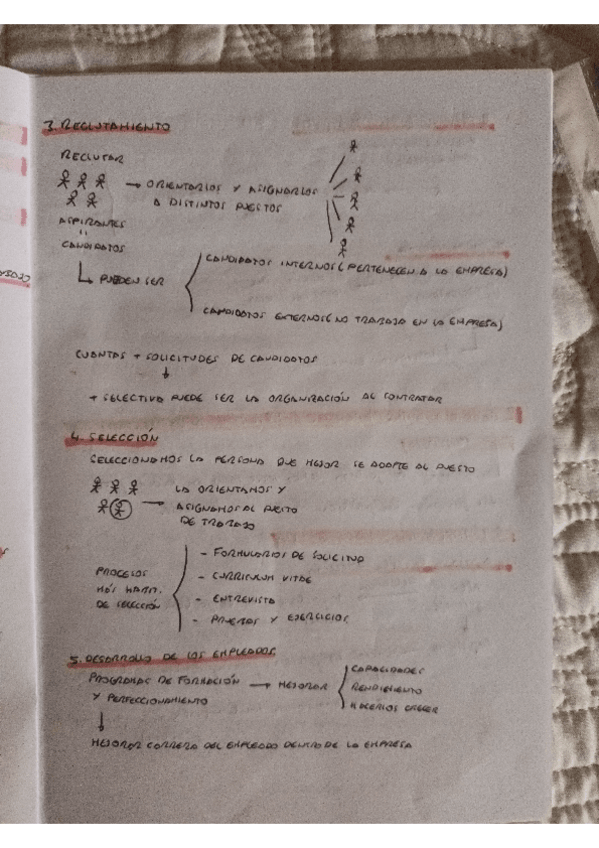 3. RECLUTAMIENTO
RECLUTAR
→ ORIENTARLOS Y ASIGNARLOS
A DISTINTOS PUESTOS
ASPIRANTES
=
CANDIDATOS
PUEDEN SER
CANDIDATOS INTERNOS (PERTENECEN A LA EMPRESA)
CANDIDATOS EXTERNOS (NO TRABAJA EN LA EMPRESA)
CUANTAS + SOLICITUDES DE CANDIDATOS
↓
+ SELECTIVA PUEDE SER LA ORGANIZACIÓN AL CONTRATAR
4. SELECCIÓN
SELECCIONAMOS LA PERSONA QUE MEJOR SE ADAPTE AL PUESTO
LA ORIENTAMOS Y
→ ASIGNAMOS AL PUESTO
DE TRABAJO
PROCESOS
MÁS HABIT.
DE SELECCIÓN
- FORMULARIOS DE SOLICITUD
- CURRICULUM VITAE
- ENTREVISTA
- PRUEBAS Y EJERCICIOS
5. DESARROLLO DE LOS EMPLEADOS
PROGRAMAS DE FORMACIÓN
Y PERFECCIONAMIENTO
→ MEJORAR
CAPACIDADES
RENDIMIENTO
HACERLOS CRECER
↓
MEJORAR CARRERA DEL EMPLEADO DENTRO DE LA EMPRESA